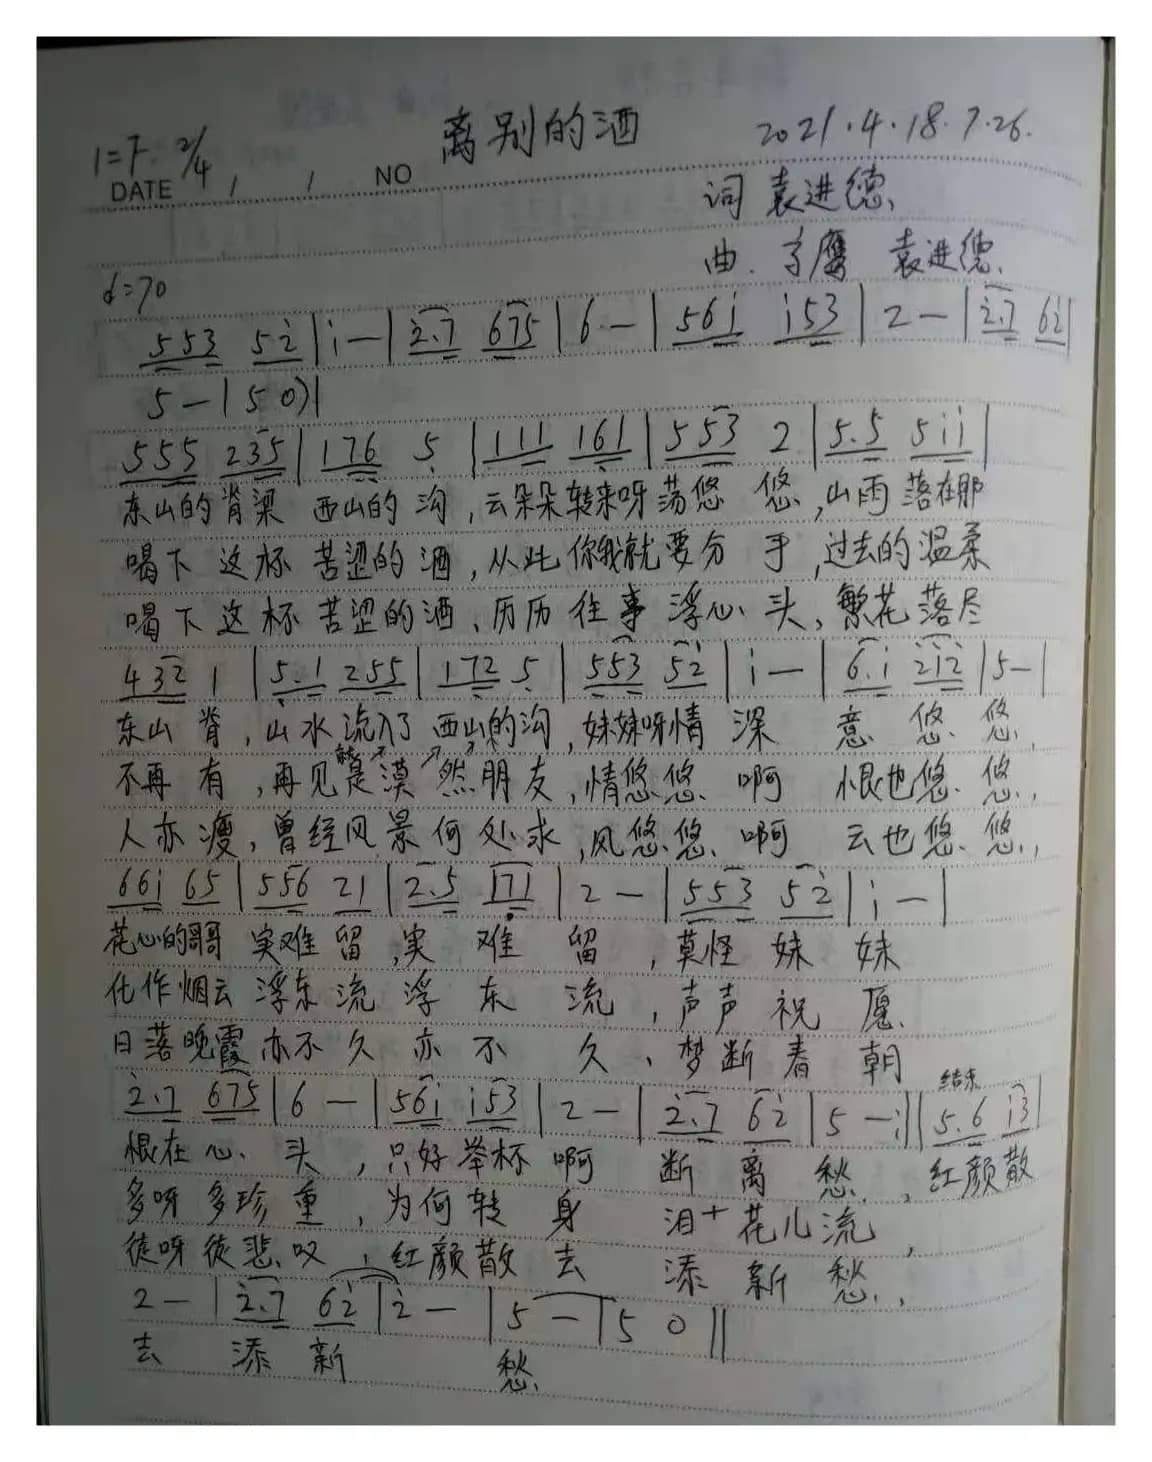 离别的酒 2021.4.18.7.26.
1=F 2/4
DATE / / NO
词 袁进德
曲. 袁进德
♩=70
553 52̇ | 1̇ — | 2̇.7 675 | 6 — | 561̇ 1̇53 | 2 — | 2̇.7 62̇ |
5 — | 5 0) |
555 235 | 176 5 | 111 161 | 553 2 | 5.5 51̇1̇ |
东山的脊梁 西山的沟,云朵朵转来呀荡悠 悠,山雨落在那
喝下这杯苦涩的酒,从此你我就要分 手,过去的温柔
喝下这杯苦涩的酒、历历往事浮心头,繁花落尽
432 1 | 5.1 255 | 172 5 | 553 52̇ | 1̇ — | 6.1̇ 2̇1̇2̇ | 5 — |
东山 脊,山水流入了西山的沟,妹妹呀情 深 意 悠 悠,
不再 有,再见是漠然朋友,情悠悠 啊 恨也悠 悠,
人亦瘦,曾经风景何处求,风悠悠 啊 云也悠 悠,
661̇ 65 | 556 21 | 2.5 171 | 2 — | 553 52̇ | 1̇ — |
花心的哥哥 实难留,实 难 留,莫怪 妹 妹
化作烟云 浮东流 浮 东 流,声声 祝 愿
日落晚霞 亦不久 亦 不 久、梦断春 朝
结束
2̇.7 675 | 6 — | 561̇ 1̇53 | 2 — | 2̇.7 62̇ | 5 — :|| 5.6 1̇3 |
恨在心 头,只好举杯 啊 断 离 愁,红颜散
多呀多珍重,为何转 身 泪+花儿流,
徒呀徒悲叹,红颜散 去 添 新 愁,
2 — | 2̇.7 62̇ | 2̇ — | 5 — | 5 0 ||
去 添 新 愁